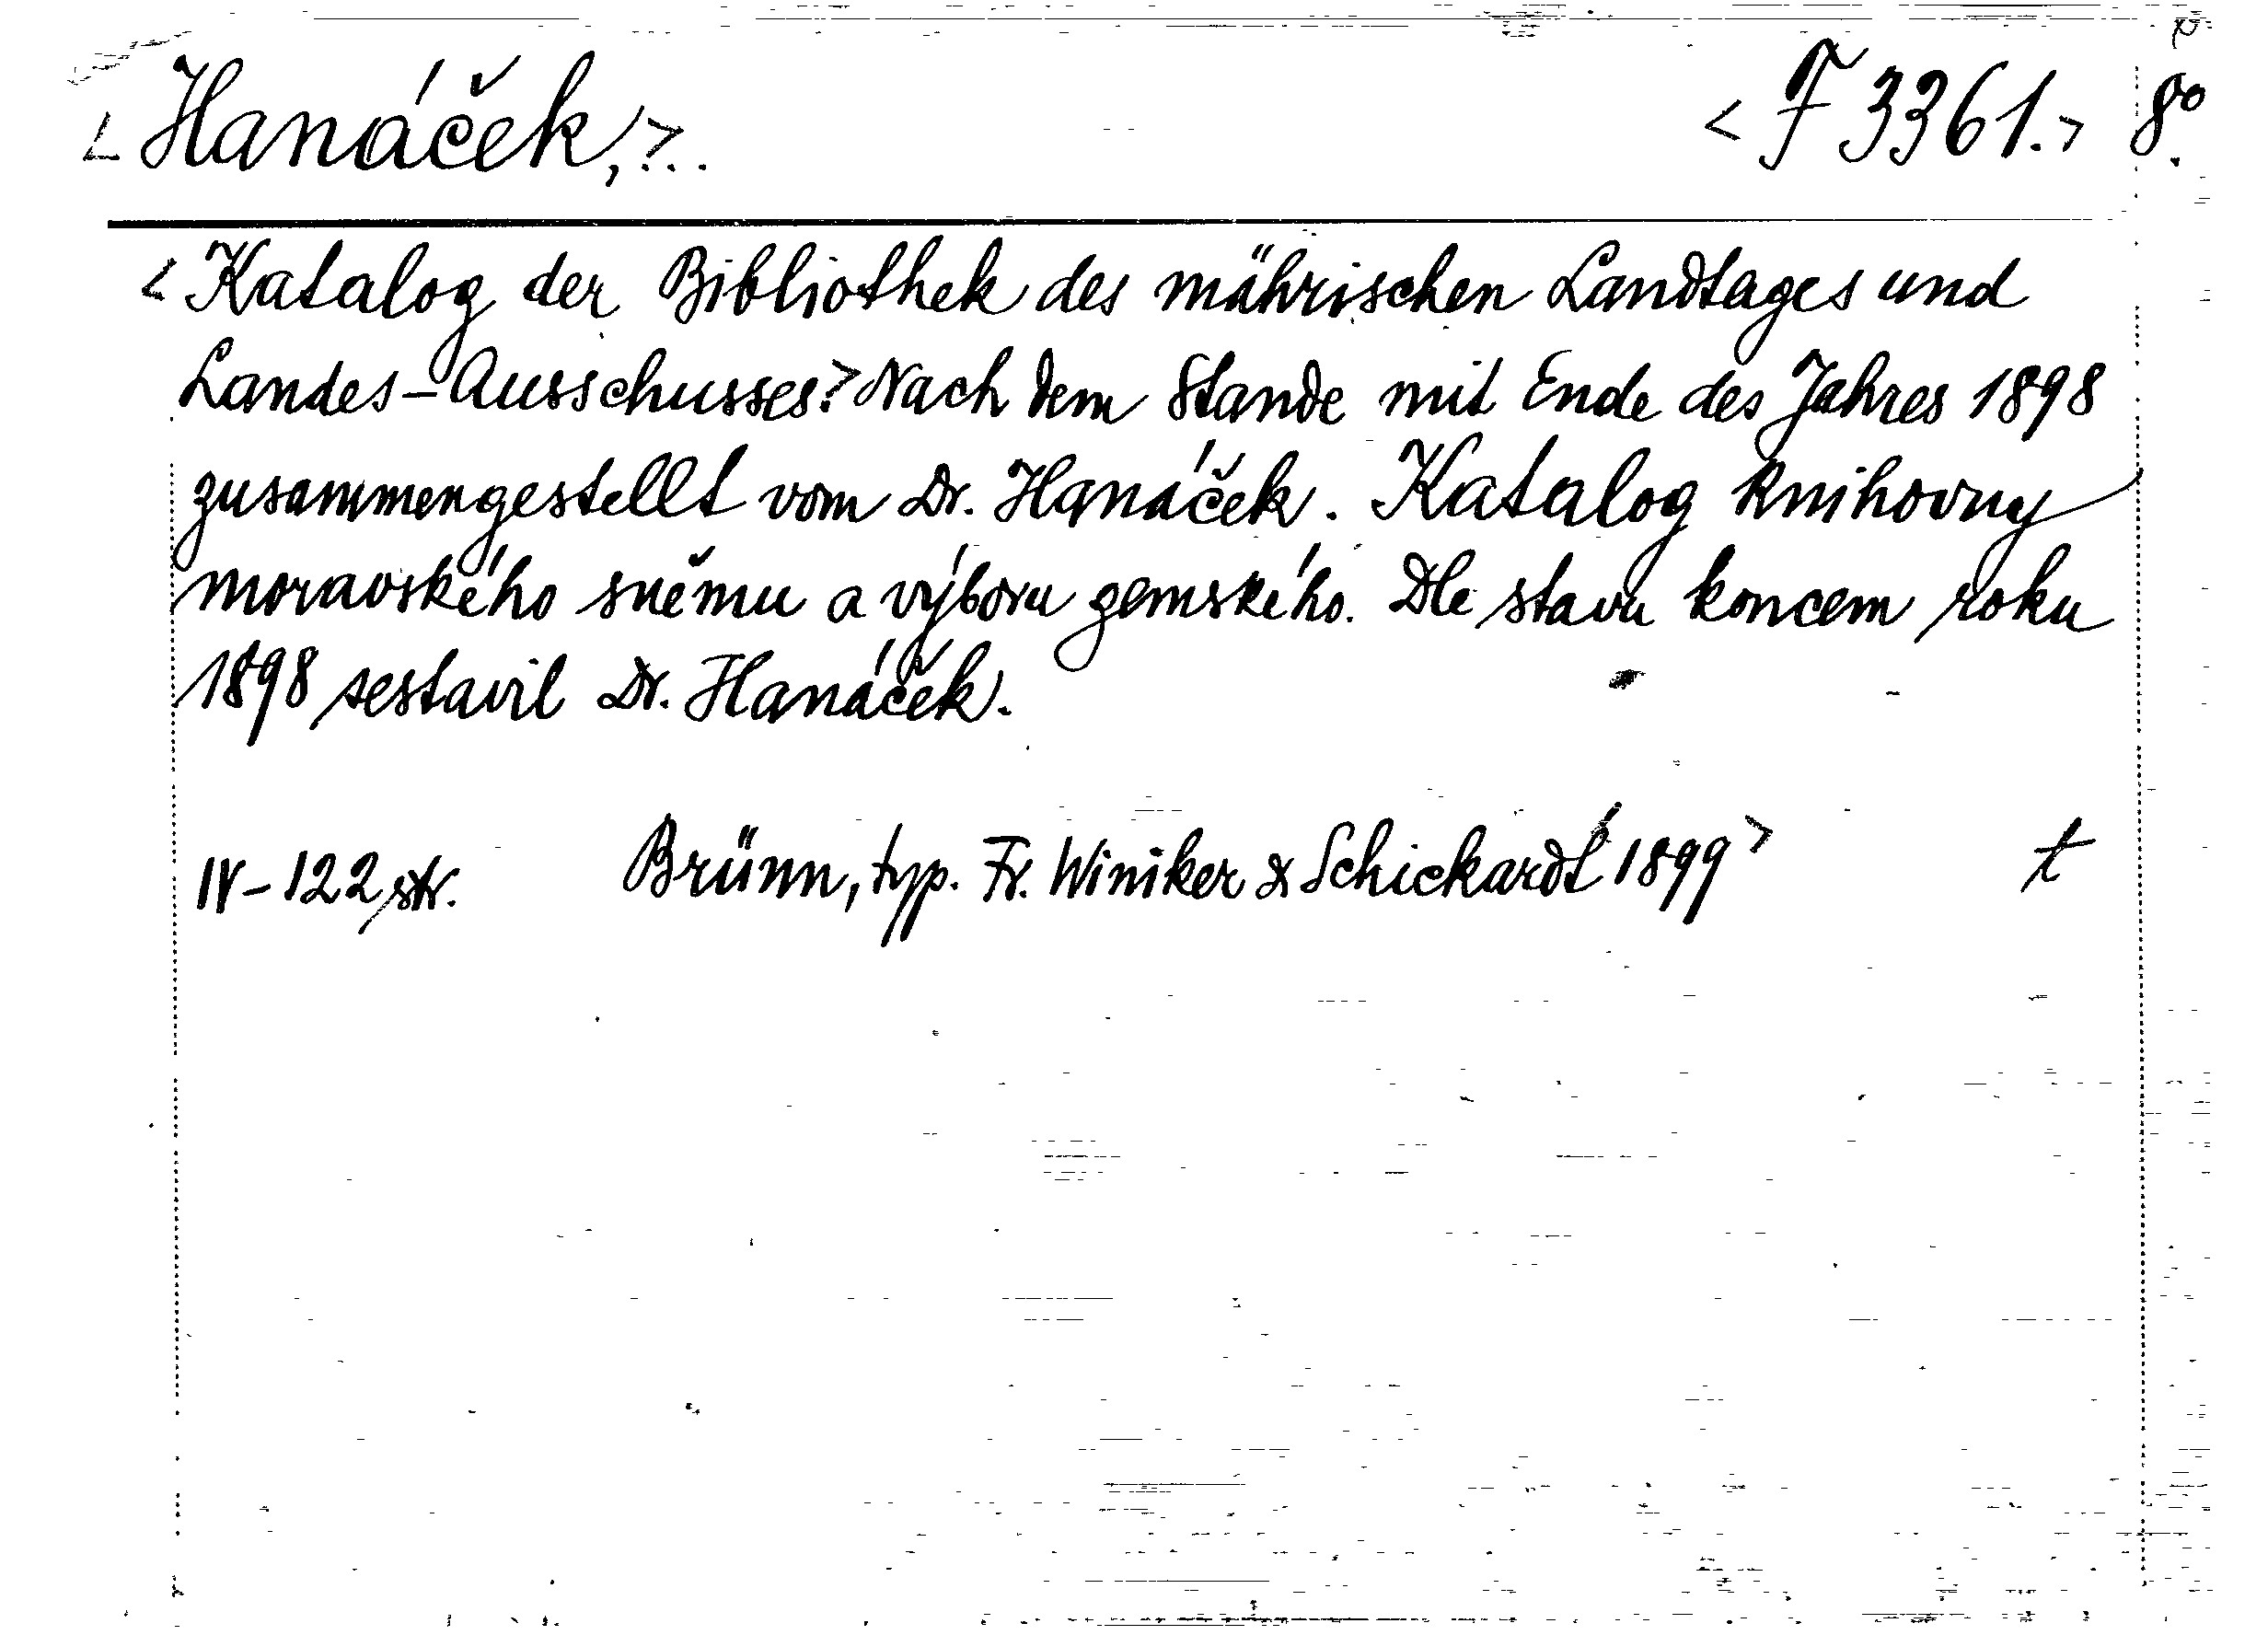 <Hanáček,>... <F 3361.> 8°.
<Katalog der Bibliothek des mährischen Landtages und
Landes-Ausschusses.> Nach dem Stande mit Ende des Jahres 1898
zusammengestellt vom Dr. Hanáček. Katalog knihovny
moravského sněmu a výboru zemského. Dle stavu koncem roku
1898 sestavil Dr. Hanáček.
IV-122 str. Brünn, typ. Fr. Winiker & Schickardt 1899> t